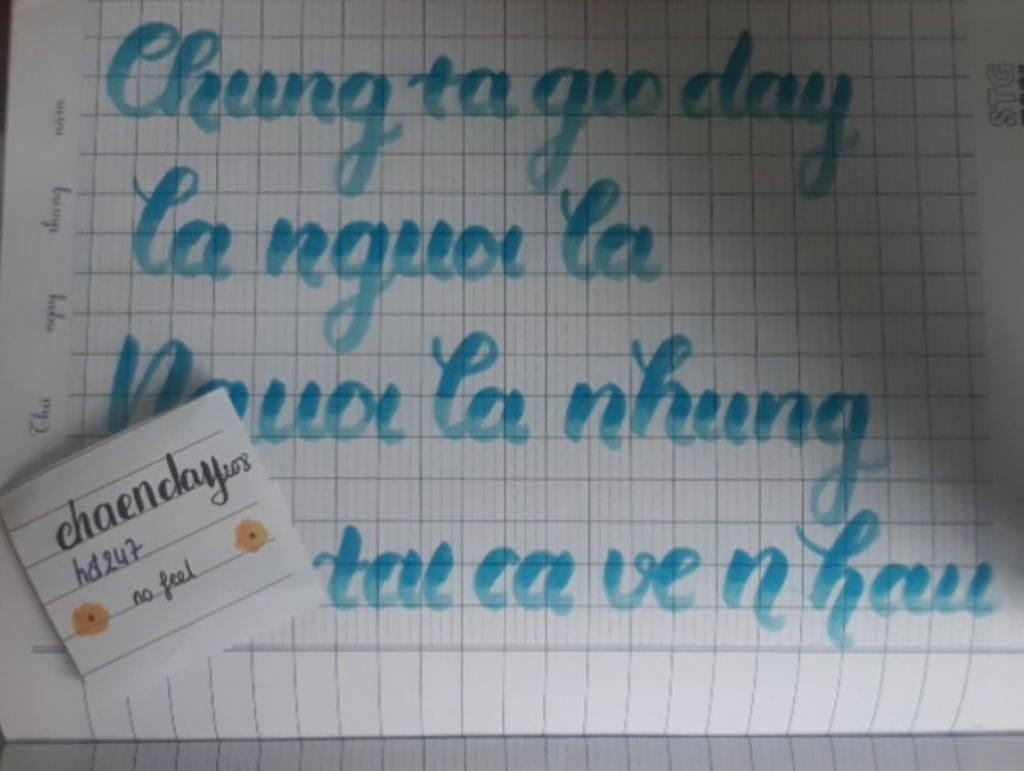 Chung ta gio day
la nguoi la
Nguoi la nhung
tai ca ve nhau
chaenday208
hd247
no feel
Thứ
ngày
tháng
năm
STG